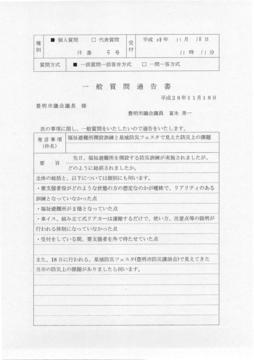 種別
■ 個人質問 □ 代表質問
件番 5号
受付
平成28年11月18日
11時11分
質問方式
■ 一括質問一括答弁方式 □ 一問一答方式
一般質問通告書
平成28年11月18日
豊明市議会議長 様
豊明市議会議員
次の事項に関し、一般質問をいたしたいので通告をいたします。
発言事項
(件名)
福祉避難所開設訓練と星城防災フェスタで見えた防災上の課題
要旨
先日、福祉避難所を開設する防災訓練が実施されましたが、
どのように総括されましたか。
全体の総括と、以下については個別にも伺います。
・要支援者役がどのような状態の方の想定なのかが曖昧で、リアリティのある
訓練となっていなかった点
・福祉避難所が2階となっていた点
・車イス、組み立て式リアカーは運搬するだけで、使い方、注意点等の説明が
行われる体制になっていなかった点
・受付をしている間、要支援者を外で待たせていた点
また、18日に行われる、星城防災フェスタ(豊明市防災講演会)で見えてきた
当市の防災上の課題がありましたら伺います。